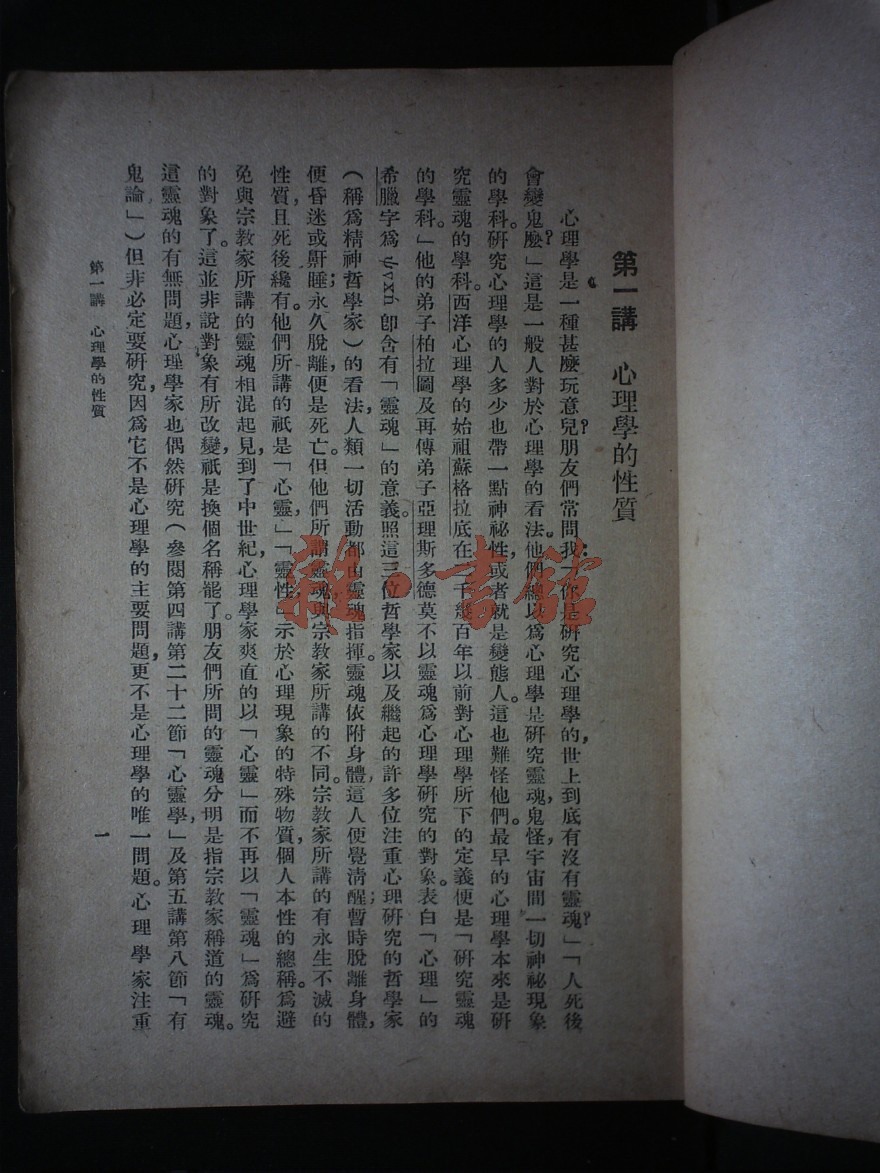 第一講　心理學的性質
心理學是一種甚麼玩意兒？朋友們常問我：「你是研究心理學的，世上到底有沒有靈魂？」「人死後
會變鬼麼？」這是一般人對於心理學的看法。他們總以爲心理學是研究靈魂，鬼怪，宇宙間一切神祕現象
的學科。研究心理學的人多少也帶一點神祕性，或者就是變態人。這也難怪他們。最早的心理學本來是研
究靈魂的學科。西洋心理學的始祖蘇格拉底在二千幾百年以前對心理學所下的定義便是「研究靈魂
的學科。」他的弟子柏拉圖及再傳弟子亞理斯多德莫不以靈魂爲心理學研究的對象。表白「心理」的
希臘字爲 ψυχή 卽含有「靈魂」的意義。照這三位哲學家以及繼起的許多位注重心理研究的哲學家
（稱爲精神哲學家）的看法，人類一切活動都由靈魂指揮。靈魂依附身體，這人便覺淸醒；暫時脫離身體，
便昏迷或鼾睡；永久脫離，便是死亡。但他們所謂靈魂與宗教家所講的不同。宗教家所講的有永生不滅的
性質，且死後纔有。他們所講的祇是「心靈，」「靈性，」示於心理現象的特殊物質，個人本性的總稱。爲避
免與宗教家所講的靈魂相混起見，到了中世紀，心理學家爽直的以「心靈」而不再以「靈魂」爲研究
的對象了。這並非說對象有所改變，祇是換個名稱罷了。朋友們所問的靈魂分明是指宗教家稱道的靈魂。
這靈魂的有無問題，心理學家也偶然研究（參閱第四講第二十二節「心靈學，」及第五講第八節「有
鬼論」）但非必定要研究，因爲它不是心理學的主要問題，更不是心理學的唯一問題。心理學家注重
第一講　心理學的性質
一
雜·書館